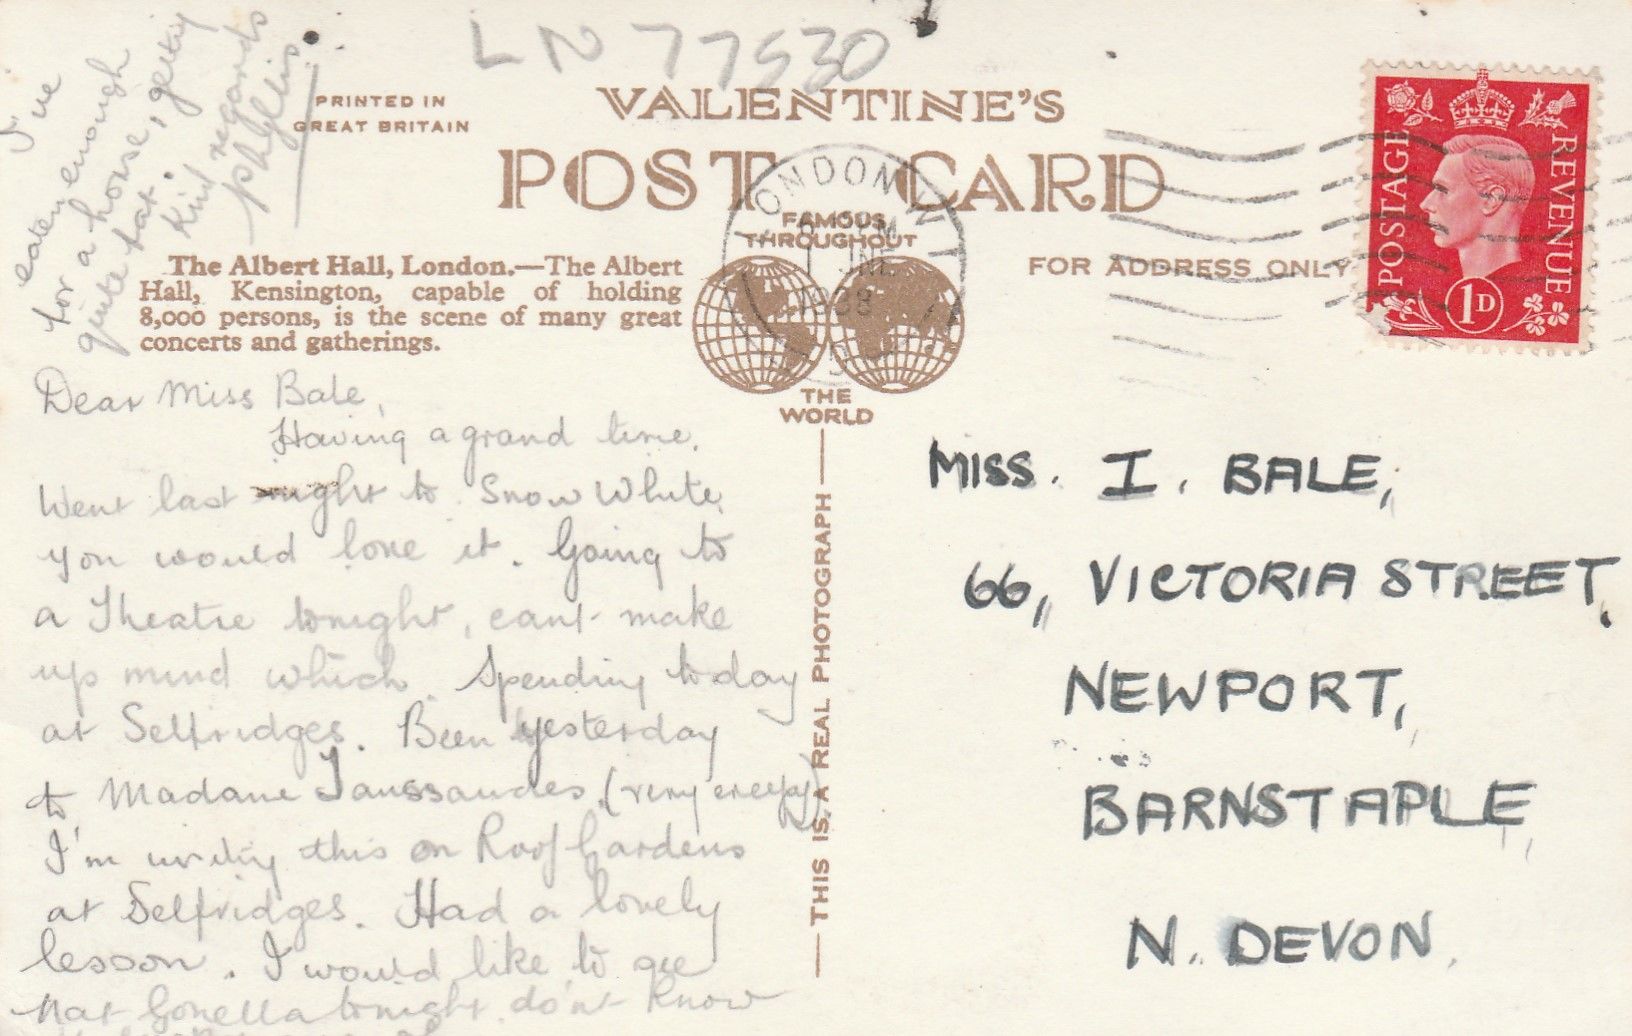 LN 77530
PRINTED IN
GREAT BRITAIN
VALENTINE'S
POST CARD
FAMOUS
THROUGHOUT
THE
WORLD
LONDON W1
JNE
1938
FOR ADDRESS ONLY
POSTAGE
REVENUE
1D
The Albert Hall, London.—The Albert
Hall, Kensington, capable of holding
8,000 persons, is the scene of many great
concerts and gatherings.
THIS IS A REAL PHOTOGRAPH
Dear Miss Bale,
Having a grand time.
Went last night to Snow White,
you would love it. Going to
a Theatre tonight, cant make
up mind which. Spending today
at Selfridges. Been yesterday
to Madame Taussaudes. (very creepy)
I'm writing this on Roof Gardens
at Selfridges. Had a lovely
lesson. I would like to see
Nat Gonella tonight, do'nt know
I've
eaten enough
for a horse, getting
quite fat.
Kind regards
Phyllis
MISS. I. BALE,
66, VICTORIA STREET,
NEWPORT,
BARNSTAPLE,
N. DEVON.